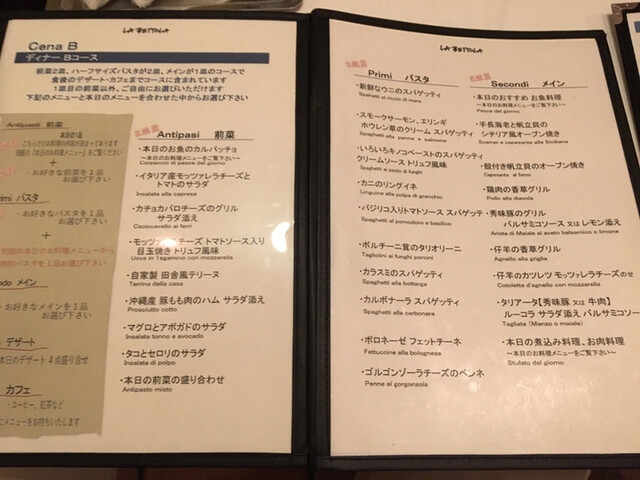 LA BETTOLA
Cena B
ディナー Bコース
前菜2皿、ハーフサイズパスタが2皿、メインが1皿のコースで
食後のデザート・カフェまでコースに含まれています
1皿目の前菜以外、ご自由にお選びいただけます
下記のメニューと本日のメニューを合わせた中からお選び下さい
Antipasti 前菜
本日の1品
こちらだけお料理の内容が決まっております
+
・お好きな前菜を1品
お選び下さい
rimi パスタ
・お好きなパスタを1品
お選び下さい
+
別紙の本日のお料理メニューから
特別パスタを1品お選び下さい
ndo メイン
・お好きなメインを1品
お選び下さい
デザート
本日のデザート 4点盛り合せ
カフェ
・コーヒー、紅茶など
にメニューをお持ちいたします
Antipasi 前菜
・本日のお魚のカルパッチョ
～本日のお料理メニューをご覧下さい～
Carpaccio di pesce del giorno
・イタリア産モッツァレラチーズと
トマトのサラダ
Insalata alla caprese
・カチョカバロチーズのグリル
サラダ添え
Caciocavallo ai ferri
・モッツァレラチーズ トマトソース入り
目玉焼き トリュフ風味
Uova in Tegamino con mozzarella
・自家製 田舎風テリーヌ
Terrina della casa
・沖縄産 豚もも肉のハム サラダ添え
Prosciutto cotto
・マグロとアボガドのサラダ
Insalata tonno e avocado
・タコとセロリのサラダ
Insalata di polpo
・本日の前菜の盛り合わせ
Antipasto misto
LA BETTOLA
Primi パスタ
・新鮮なウニのスパゲッティ
Spaghetti al riccio di mare
・スモークサーモン、エリンギ
ホウレン草のクリーム スパゲッティ
Spaghetti alla panna e salmone
・いろいろキノコペーストのスパゲッティ
クリームソース トリュフ風味
Spaghetti al pesto di funghi
・カニのリングイネ
Linguine alla polpa di granchio
・バジリコ入りトマトソース スパゲッティ
Spaghetti al pomodoro e basilico
・ポルチーニ茸のタリオリーニ
Tagliolini al funghi porcini
・カラスミのスパゲッティ
Spaghetti alla bottarga
・カルボナーラ スパゲッティ
Spaghetti alla carbonara
・ボロネーゼ フェットチーネ
Fettuccine alla bolognese
・ゴルゴンゾーラチーズのペンネ
Penne al gorgonzola
Secondi メイン
・本日のおすすめ お魚料理
～本日のお料理メニューをご覧下さい～
Pesce del giorno
・手長海老と帆立貝の
シチリア風オーブン焼き
Scampi e capesante alla Siciliana
・殻付き帆立貝のオーブン焼き
Capesante al forno
・鶏肉の香草グリル
Pollo alla diavola
・秀味豚のグリル
バルサミコソース 又は レモン添え
Arista di Maiale al aceto balsamico o limone
・仔羊の香草グリル
Agnello alla griglia
・仔羊のカツレツ モッツァレラチーズのせ
Cotoletta d'agnello con mozzarella
・タリアータ【秀味豚 又は 牛肉】
ルーコラ サラダ添え バルサミコソー
Tagliata (Manzo o maiale)
・本日の煮込み料理、お肉料理
～本日のお料理メニューをご覧下さい～
Stufato del giorno